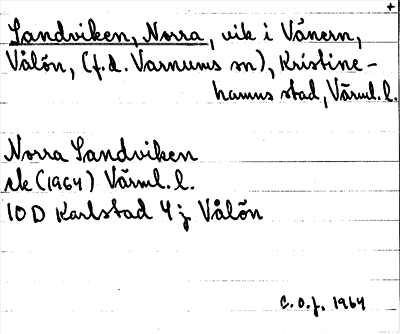 +
Sandviken, Norra, vik i Vänern,
Vålön, (f.d. Varnums sn), Kristine-
hamns stad, Värml. l.
Norra Sandviken
ek (1964) Värml. l.
10 D Karlstad 4 j Vålön
C. O. J. 1964